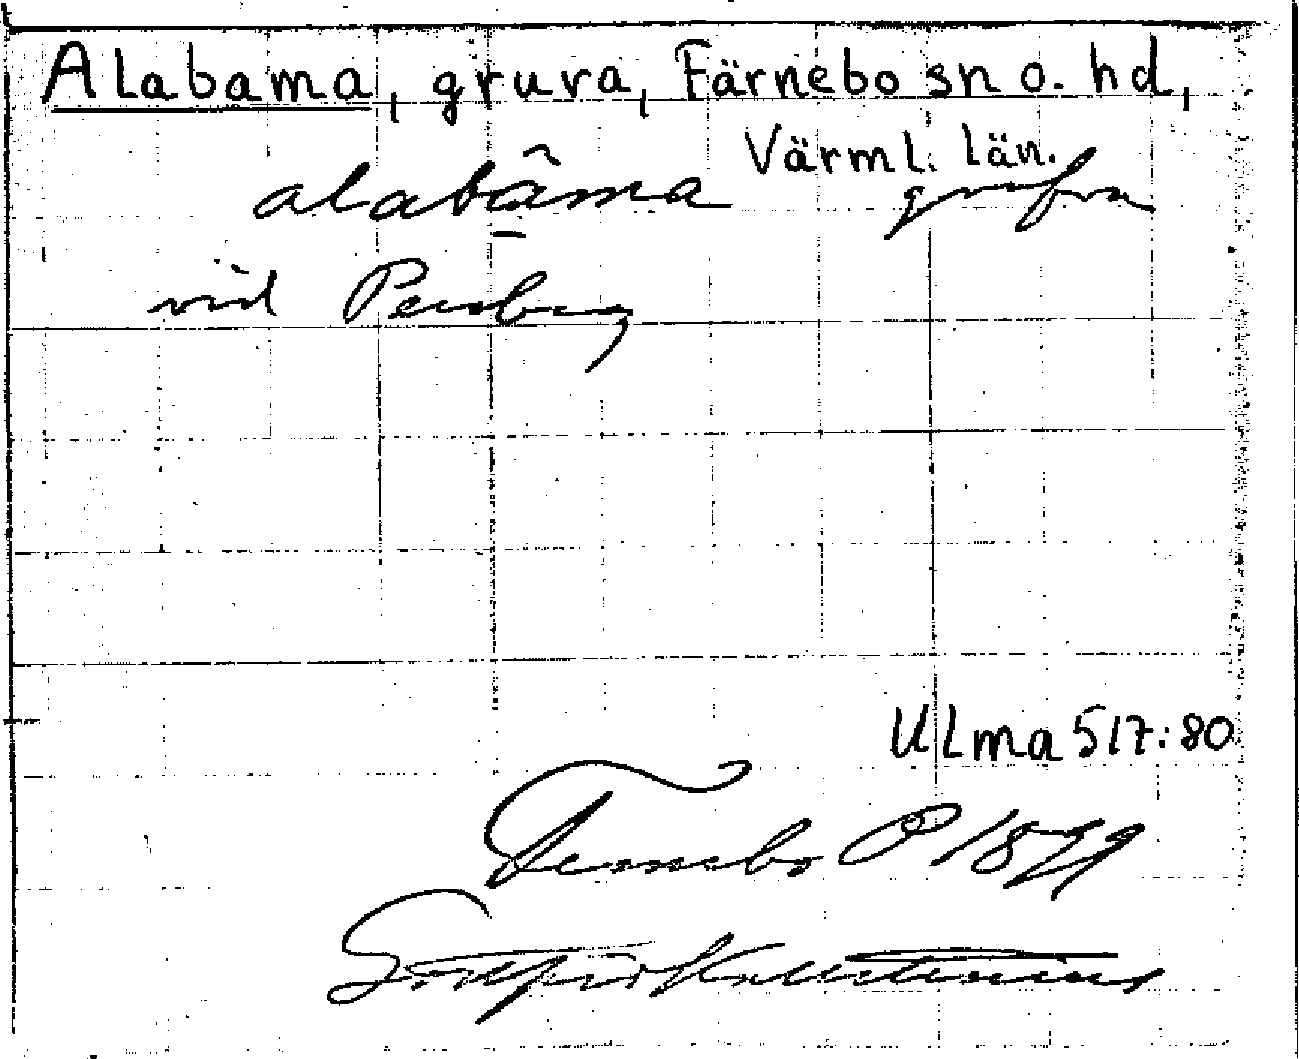 Alabama, gruva, Färnebo sn o. hd,
Värml. län.
alabama grufva
vid Persberg
Ulma 517:80
Fernebo P 1879
Gottfrid Kallstenius